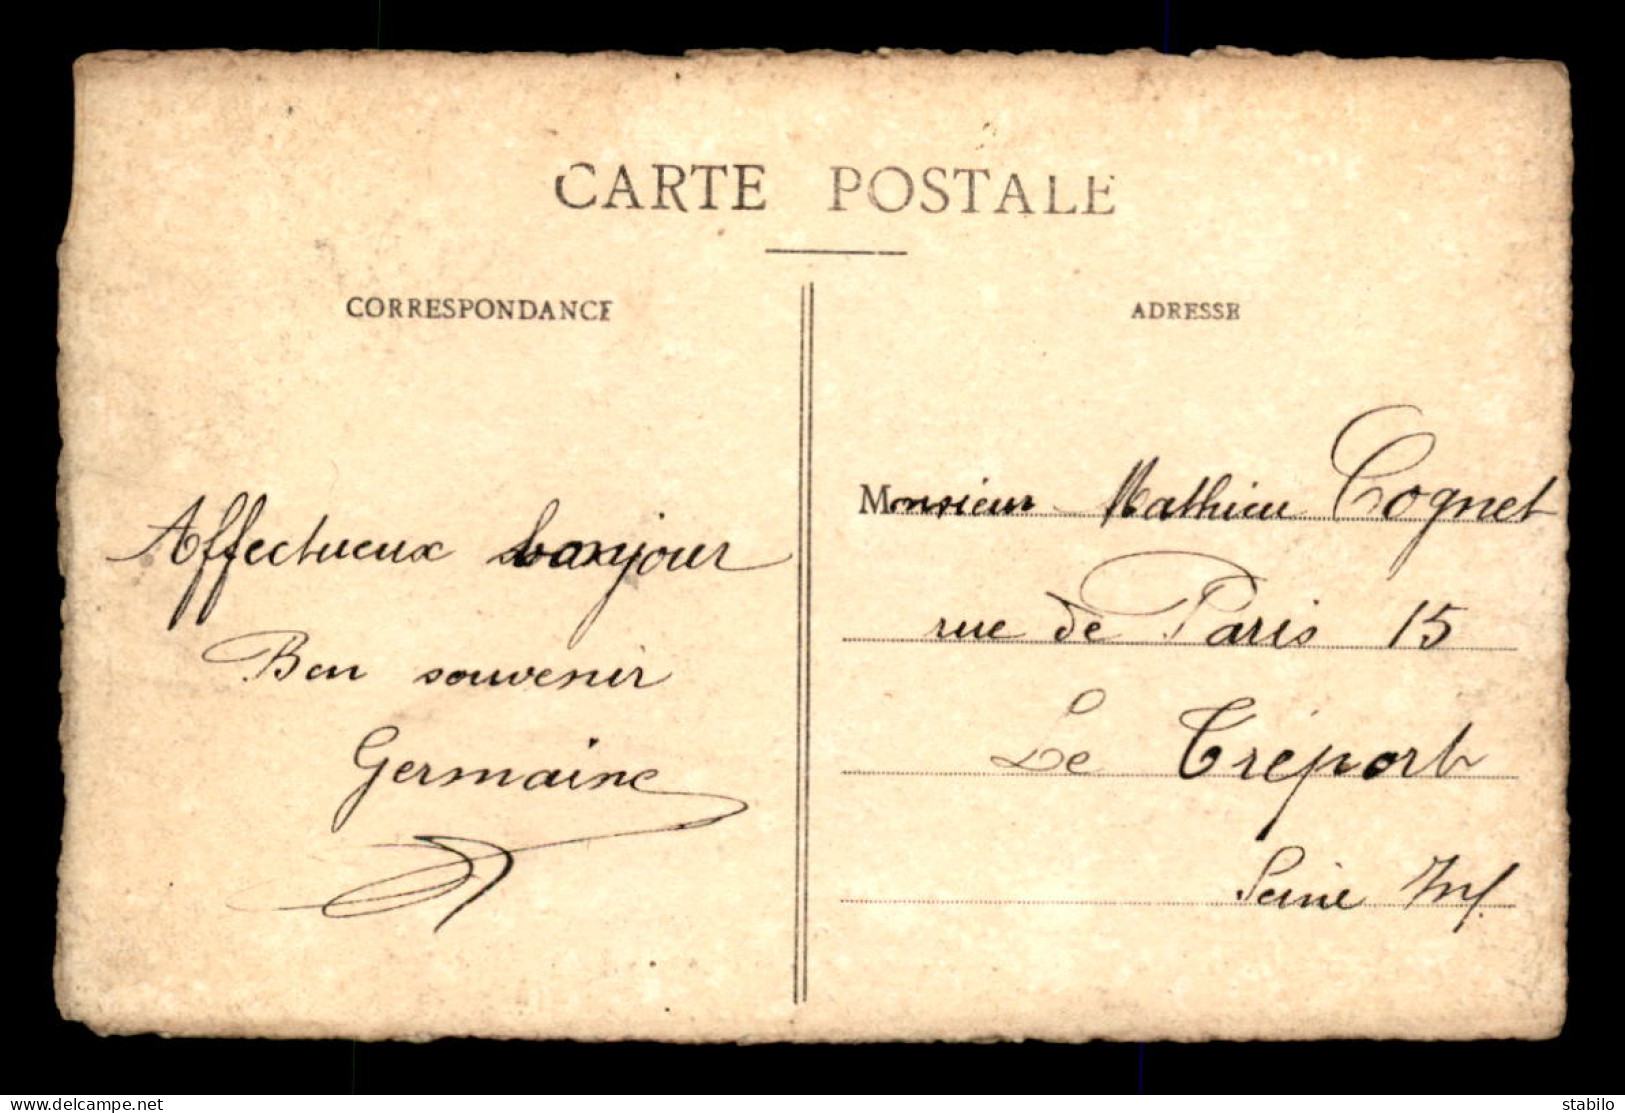 CARTE POSTALE
CORRESPONDANCE
ADRESSE
Affectueux bonjour
Bon souvenir
Germaine
Monsieur Mathieu Cognet
rue de Paris 15
Le Tréport
Seine Inf.
www.delcampe.net
stabilo